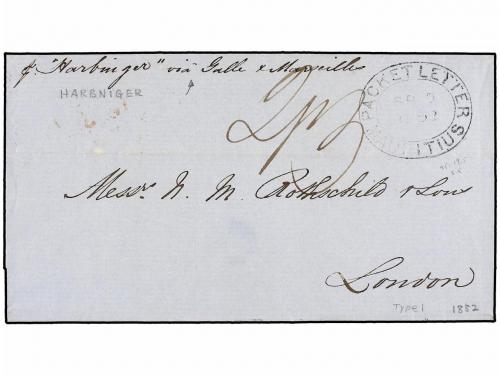 pr. "Harbinger" via Galle & Marseilles
HARBNIGER
PACKET LETTER
MAURITIUS
2/3
Messrs. N. M. Rothschild & Sons
London
Type 1 1852